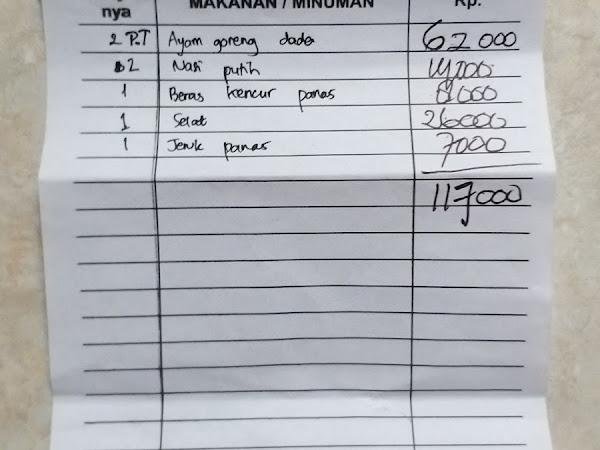 nya MAKANAN / MINUMAN Rp.
2 PT Ayam goreng dada 62 000
2 Nasi putih 14000
1 Beras kencur panas 8000
1 Selat 26000
1 Jeruk panas 7000
117000